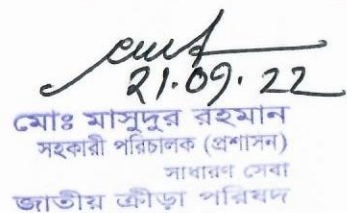 21.09.22
মোঃ মাসুদুর রহমান
সহকারী পরিচালক (প্রশাসন)
সাধারণ সেবা
জাতীয় ক্রীড়া পরিষদ